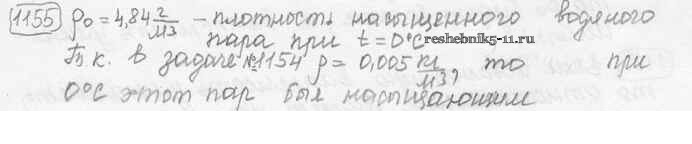 1155 ρ₀ = 4,84 г/м3 - плотность насыщенного водяного
пара при t = 0°C
reshebnik5-11.ru
Т.к. в задаче №1154 ρ = 0,005 кг/м3, то при
0°C этот пар был насыщающим